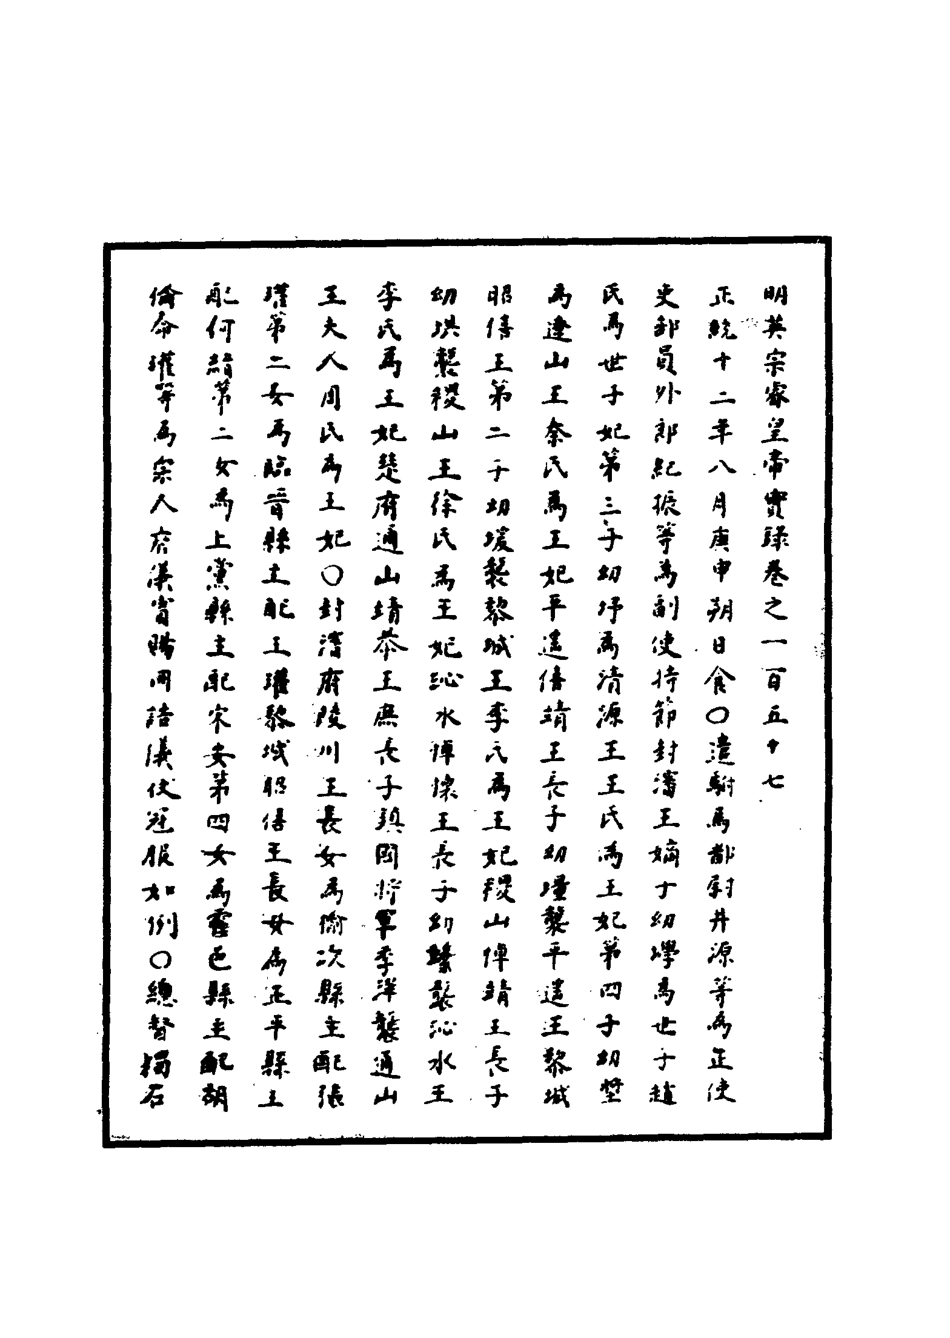 明英宗睿皇帝實錄卷之一百五十七
正統十二年八月庚申朔日食○遣駙馬都尉井源等為正使
吏部員外郎紀振等為副使持節封瀋王嫡子幼㙾為世子趙
氏為世子妃第三子幼㘧為清源王王氏為王妃第四子幼㙊
為遼山王秦氏為王妃平遙僖靖王長子幼㙥襲平遙王黎城
昭僖王第二子幼㙇襲黎城王李氏為王妃稷山悼靖王長子
幼㙀襲稷山王徐氏為王妃沁水悼懷王長子幼㙺襲沁水王
李氏為王妃楚府通山靖恭王庶長子鎮國將軍季洋襲通山
王夫人周氏為王妃○封瀋府陵川王長女為榆次縣主配張
瓘第二女為臨晉縣主配王瓘黎城昭僖王長女為正平縣主
配何縉第二女為上黨縣主配宋安第四女為靈邑縣主配胡
倫命瓘等為宗人府儀賓賜冊誥儀仗冠服如例○總督獨石